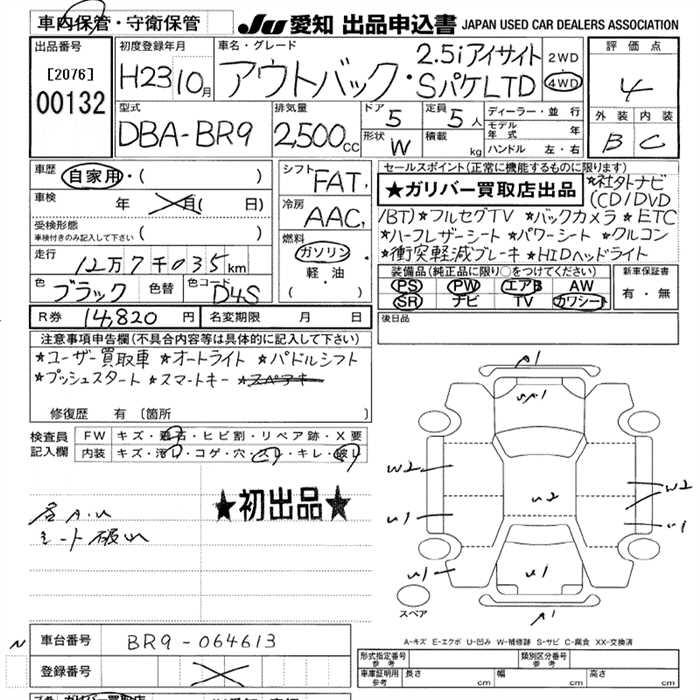 車内保管・守衛保管
JU 愛知 出品申込書 JAPAN USED CAR DEALERS ASSOCIATION
出品番号
[2076]
00132
初度登録年月
H23 10月
車名・グレード
アウトバック・2.5iアイサイト SパケLTD
2WD
4WD
評価点
4
外装 内装
B C
型式
DBA-BR9
排気量
2,500cc
ドア
5
定員
5人
形状
W
積載
kg
ディーラー・並行
モデル年式 年
ハンドル 左・右
車歴
自家用・( )
車検
年 月( 日)
受検形態
車検付きのみ記入して下さい ( )
走行
12万7千035km
色
ブラック
色替
色コード
D4S
シフト
FAT
冷房
AAC
燃料
ガソリン
軽・油
( )
セールスポイント(正常に機能するものに限ります)
★ガリバー買取店出品
★社外ナビ
(CD/DVD
/BT)★フルセグTV ★バックカメラ★ETC
★ハーフレザーシート★パワーシート★クルコン
★衝突軽減ブレーキ★HIDヘッドライト
装備品(純正品に限り○をつけてください)
PS PW エアB AW
SR ナビ TV カワシート
新車保証書
有・無
R券 14,820円
名変期限 月 日
後日品
注意事項申告欄(不具合内容等は具体的に記入して下さい)
★ユーザー買取車★オートライト★パドルシフト
★プッシュスタート★スマートキー★スペアキー
修復歴 有 〔箇所 〕
検査員記入欄
FW キズ・飛石・ヒビ割・リペア跡・X要
内装 キズ・汚れ・コゲ・穴・スレ・キレ・破れ
★初出品★
A.U
シート破れ
A1
U1
W2
U1
U1
U2
W2
U1
U1
A1
スペア
A-キズ E-エクボ U-凹み W-補修跡 S-サビ C-腐食 XX-交換済
N
車台番号 BR9-064613
登録番号
形式指定番号 参考
類別区分番号 参考
車庫証明用 参考 長さ cm 幅 cm 高さ cm